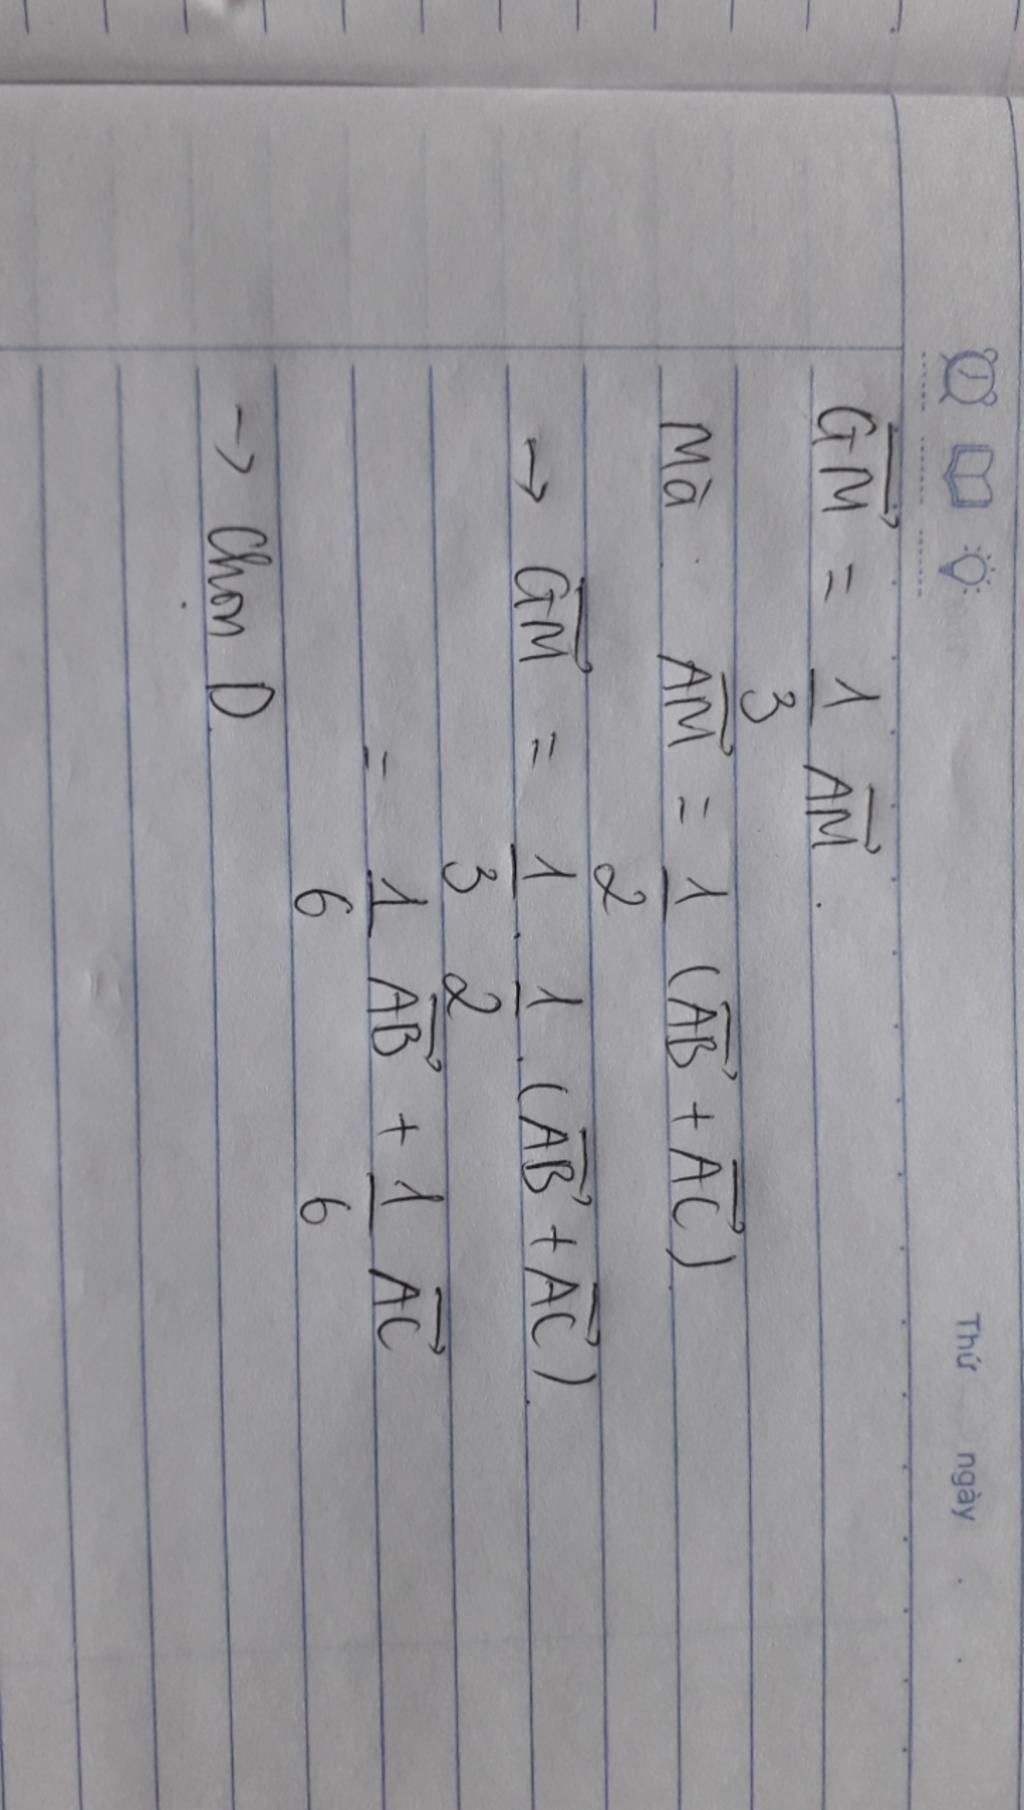 Thứ ngày
GM→ = 1/3 AM→
Mà AM→ = 1/2 (AB→ + AC→)
→ GM→ = 1/3 . 1/2 . (AB→ + AC→)
= 1/6 AB→ + 1/6 AC→
→ Chọn D